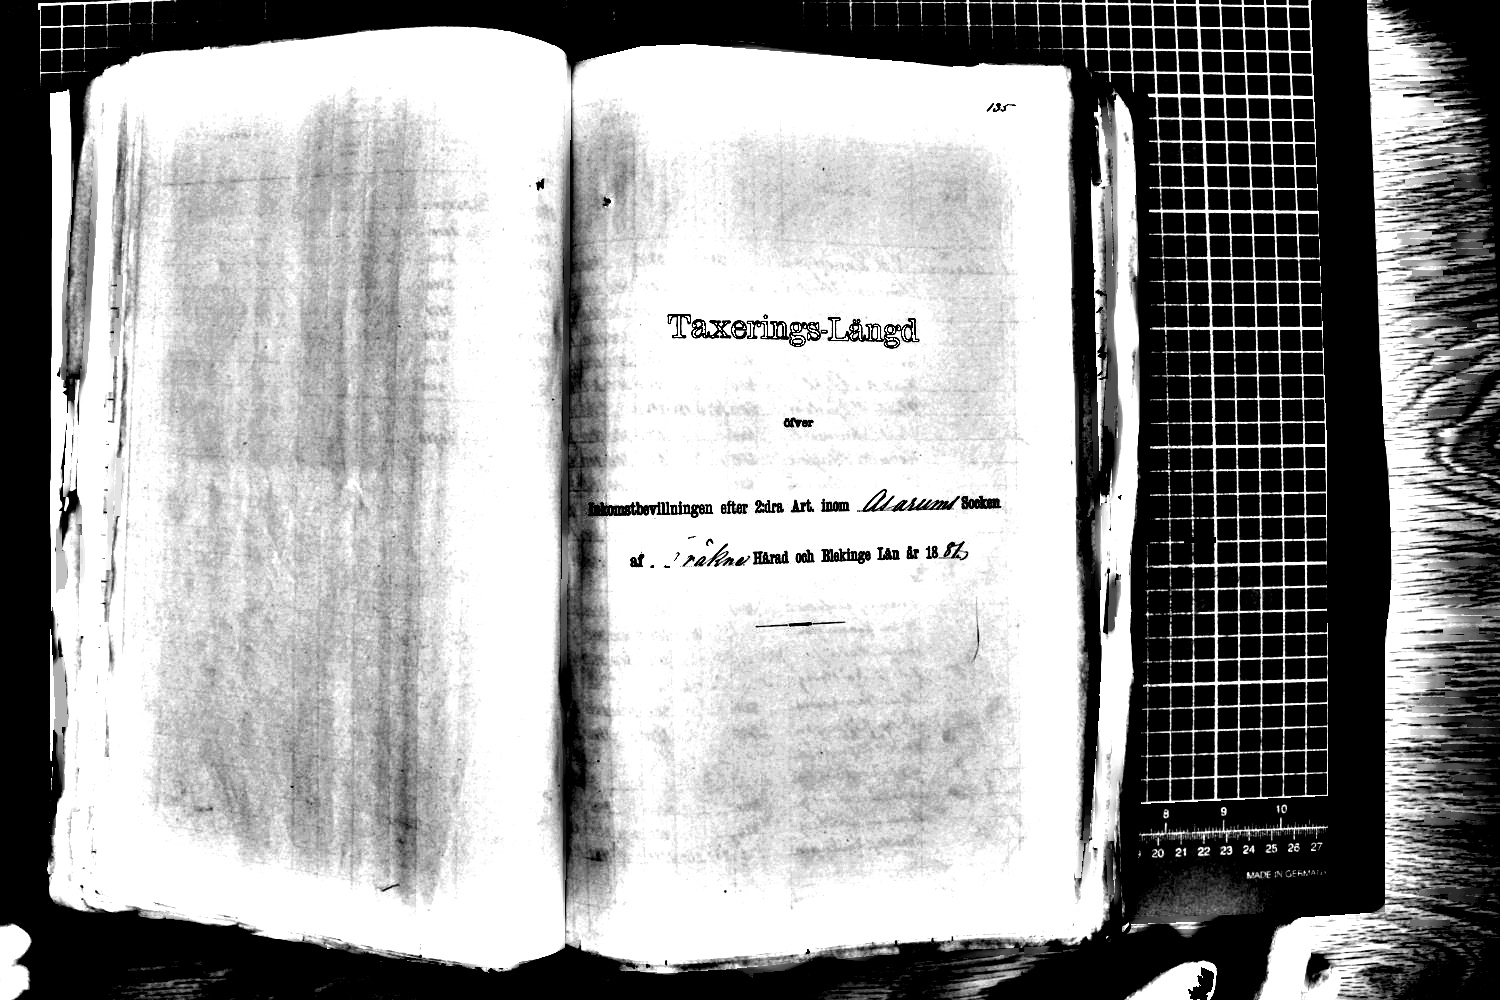 135
Taxerings-Längd
öfver
Inkomstbevillningen efter 2:dra Art. inom Asarums Socken
af Bräkne Härad och Blekinge Län år 1886
8 9 10
20 21 22 23 24 25 26 27
MADE IN GERMANY